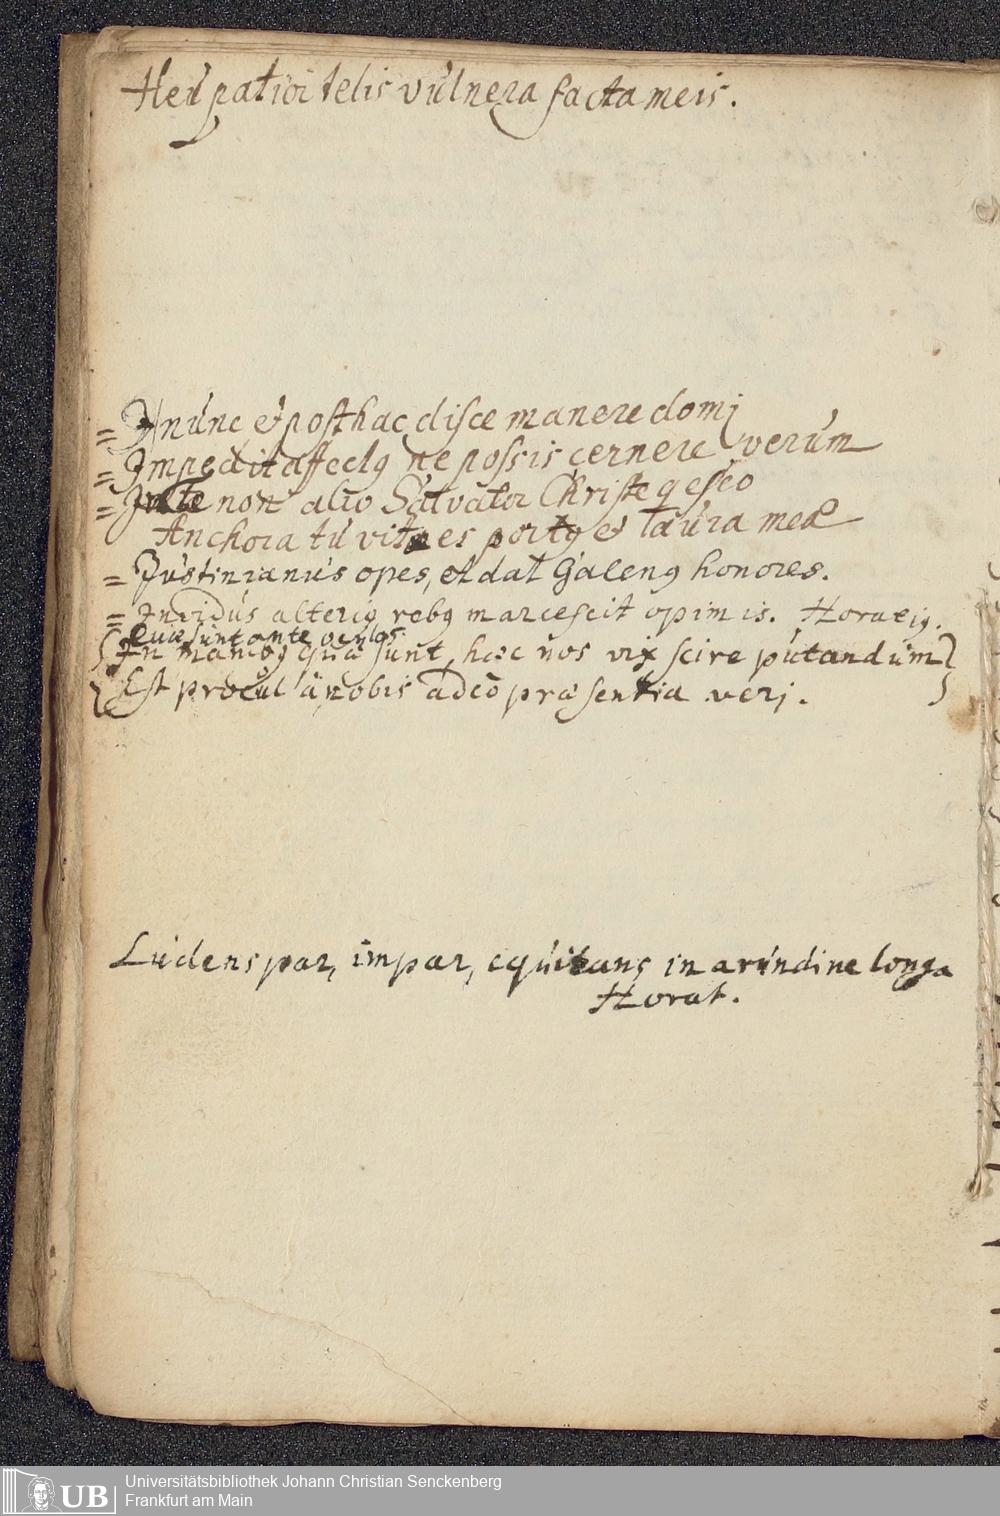 Heu patior telis vulnera facta meis.
= I nunc & posthac disce manere domj
= Impedit affectꝯ ne possis cernere verum
= In te non alio Salvator Christe qesco
Anchora tu vitæ es portꝯ & laura meæ
= Justinianus opes, et dat Galenꝯ honores.
= Invidus alteriꝯ rebꝯ marcescit opimis. Horatiꝯ.
quæ sunt ante oculos
In manibꝯ quæ sunt, hæc nos vix scire putandum
Est procul à nobis adeò præsentia verj.
Ludens par, impar, equitans in arundine longa
Horat.
UB
Universitätsbibliothek Johann Christian Senckenberg
Frankfurt am Main